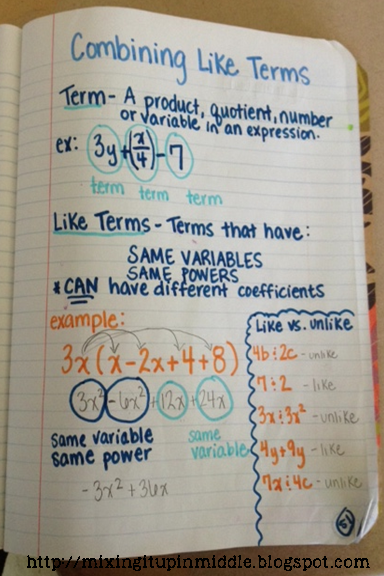 Combining Like Terms
Term - A product, quotient, number
or variable in an expression.
ex: 3y + (x/4) - 7
term term term
Like Terms - Terms that have:
SAME VARIABLES
SAME POWERS
* CAN have different coefficients
example:
3x(x-2x+4+8)
3x² - 6x² + 12x + 24x
same variable
same power
same
variable
-3x² + 36x
Like vs. unlike
4b & 2c - unlike
7 & 2 - like
3x & 3x² - unlike
4y + 9y - like
7x & 4c - unlike
http://mixingitupinmiddle.blogspot.com